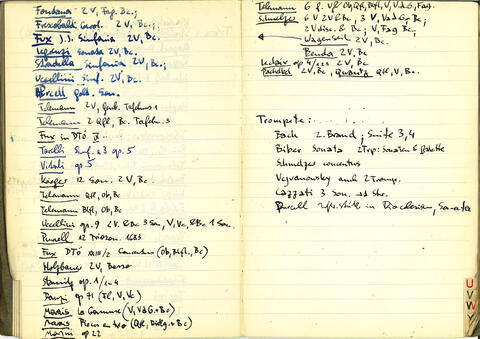 Fontana 2 V, Fag. Bc.;
Frescobaldi 2 V, Bc.;
Fux J.J. Sinfonia 2V, Bc.
Legrenzi Sonata 2V, Bc.
Stradella Sinfonia 2V, Bc.;
Uccellini Sinf. 2 V, Bc
Purcell Gold. Son.
Telemann 2 V, Tafelmus 1
Telemann 2 Qfl, Bc. Tafelm. 3
Fux in DTÖ
Torelli Sinf. a3 op. 5
Vitali op. 5
Krieger 12 Son. 2 V, Bc
Telemann Qfl, Ob, Bc
Telemann Blfl, Ob, Bc
Uccellini op. 9 2V &Bc 3 Son, V, Vc &Bc 1 Son.
Purcell 12 Trioson. 1683
Fux DTÖ Concentus (Ob, Blfl., Bc)
Holzbauer 2V, Basso
Stamitz op. 1
Danzi op 71 (Fl, V, Vc)
Marais La Gamme (V, VdG.+Bc)
Marais Pieces en trio (Qfl, +Bc)
op 22
Telem. 6 V, VdG, Fag.
Schmelzer 6 V 2V& Bc, 3 V, VdG Bc;
& Bc; V, Fag Bc
Wagenseil 2V, Bc
Benda 2V, Bc
Leclair op 4 2V, Bc
Pachelbel 2V, Bc, Quantz Qfl, V, Bc.
Trompete:
Bach 2. Brand; Suite 3, 4
Biber Sonata 2Trp: Sonaten &
Schmelzer concentus
Vejvanowsky and 2 Tromp.
Cazzati 3 Son.
Purcell in Dioclesian, Sonata
U
V
W